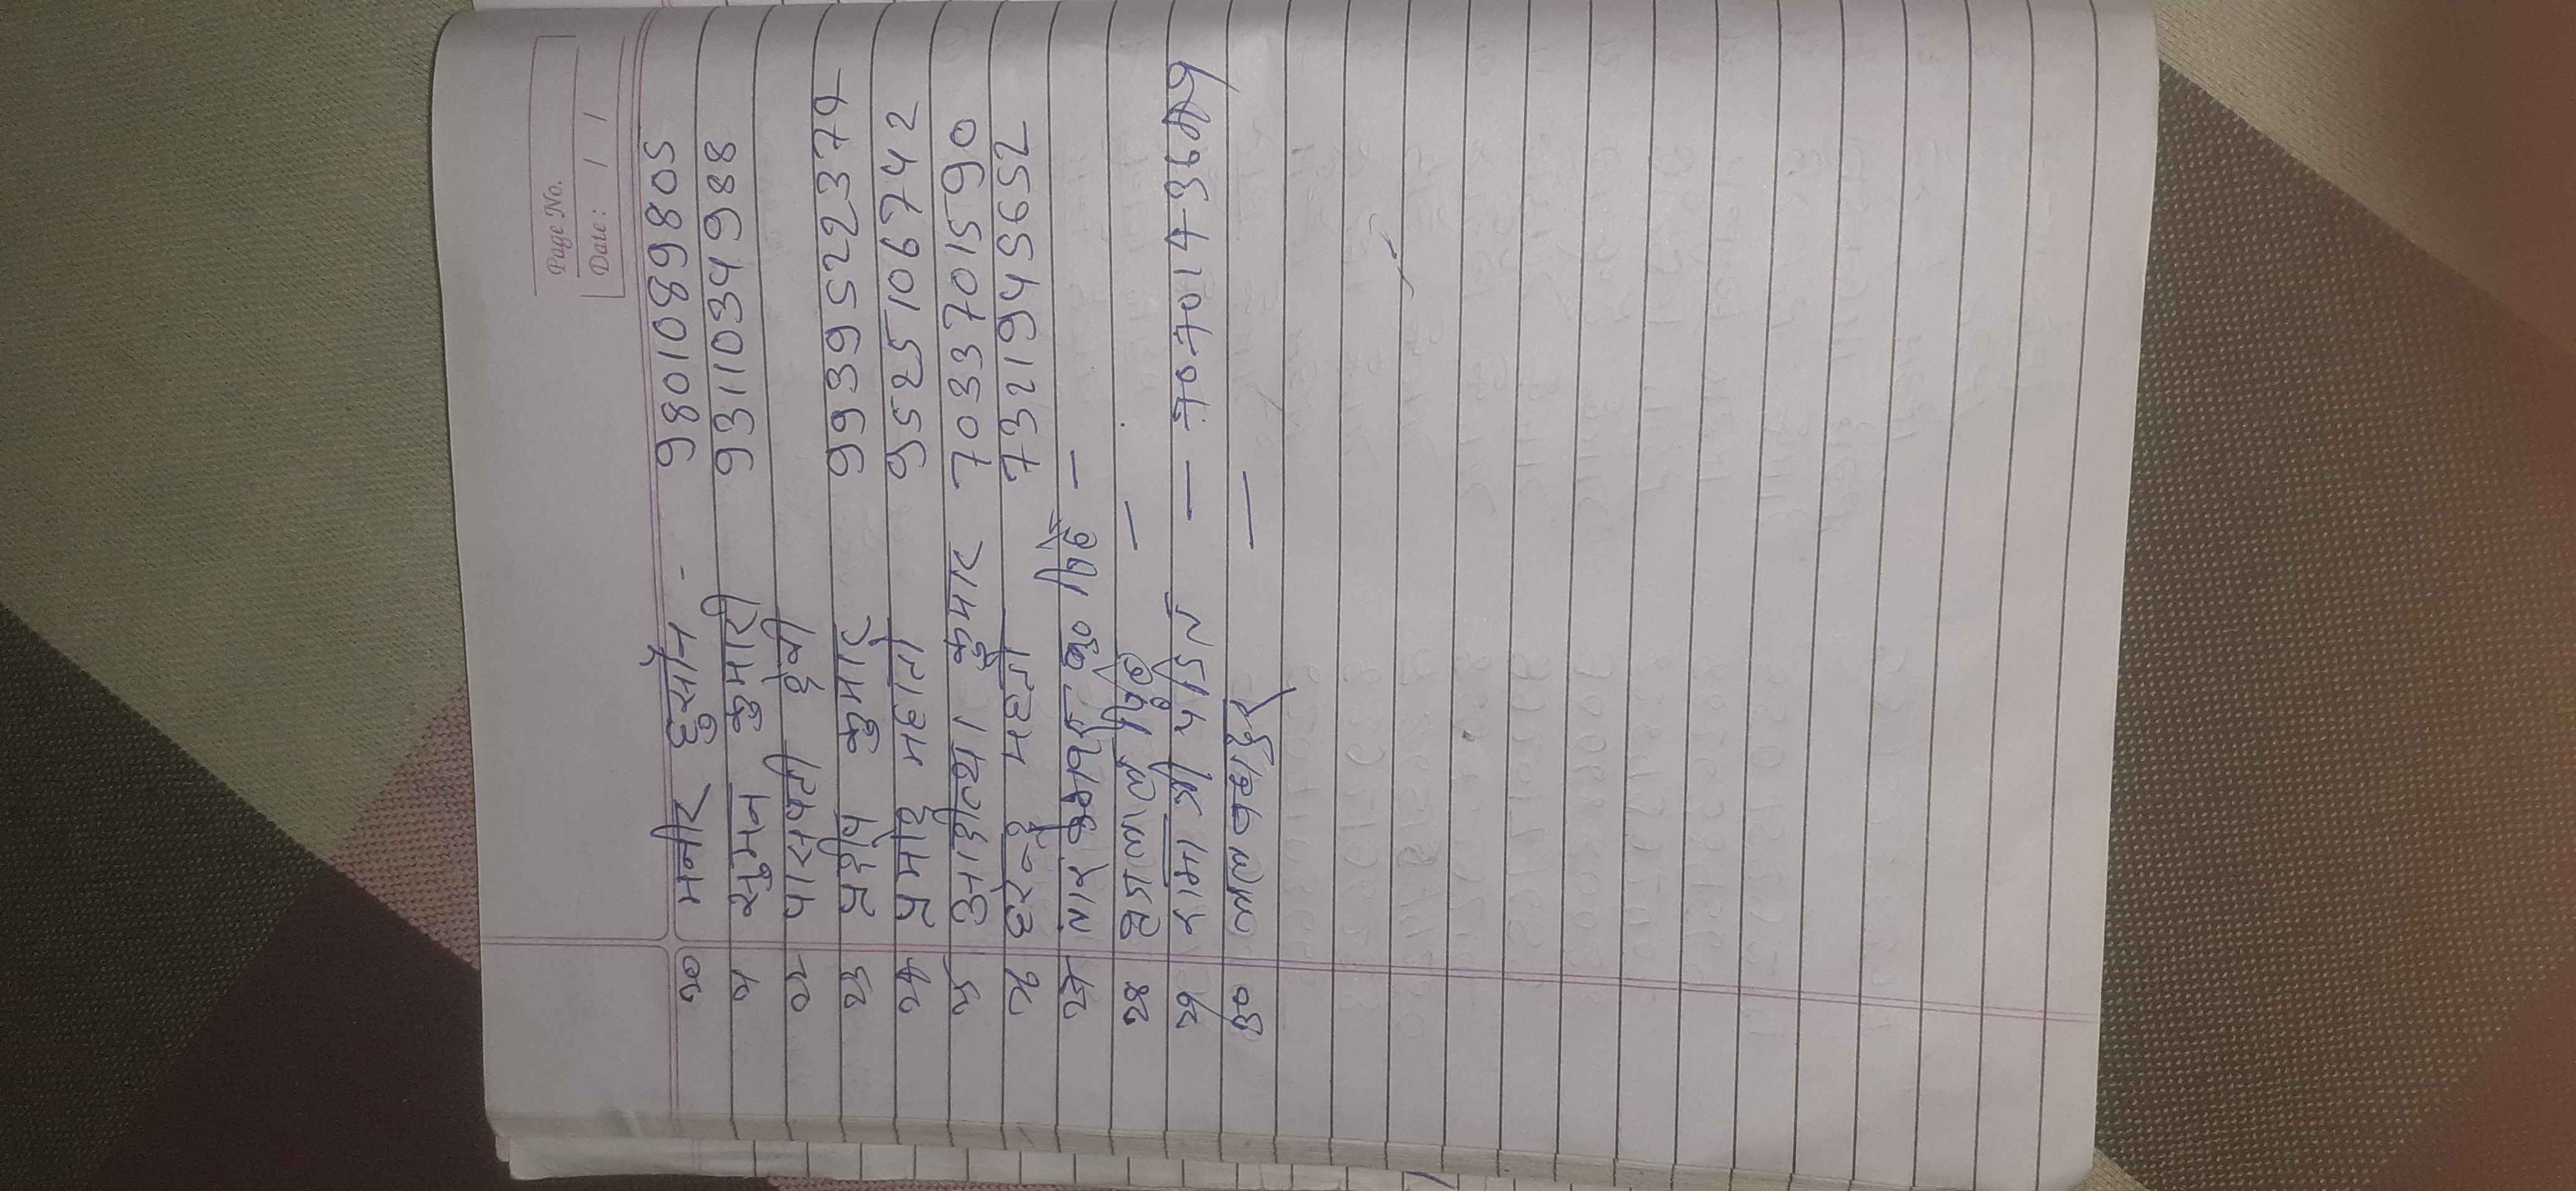 Page No.
Date: / /
२० मनीर हुसैन - 9801089805
२१ सुमन कुमारी 9311034988
२२ पारसपती देवी
२३ प्रदीप कुमार 9939522374
२४ प्रमोद महतो 9525106742
२५ आदीत्या कुमार 7033701590
२६ हरेन्द्र महतो 7321945652
२७ कु० सिंह —
२८ सिंह —
२९ रामा जी — 707014
३० लाल बहादुर —